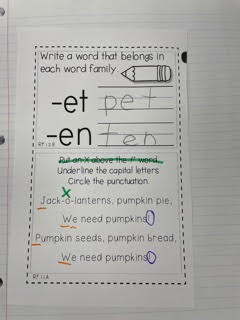 Write a word that belongs in
each word family.
-et pet
-en ten
RF.1.2.B
Put an X above the 1st word.
Underline the capital letters.
Circle the punctuation.
X
Jack-o-lanterns, pumpkin pie,
We need pumpkins!
Pumpkin seeds, pumpkin bread,
We need pumpkins!
RF.1.1.A